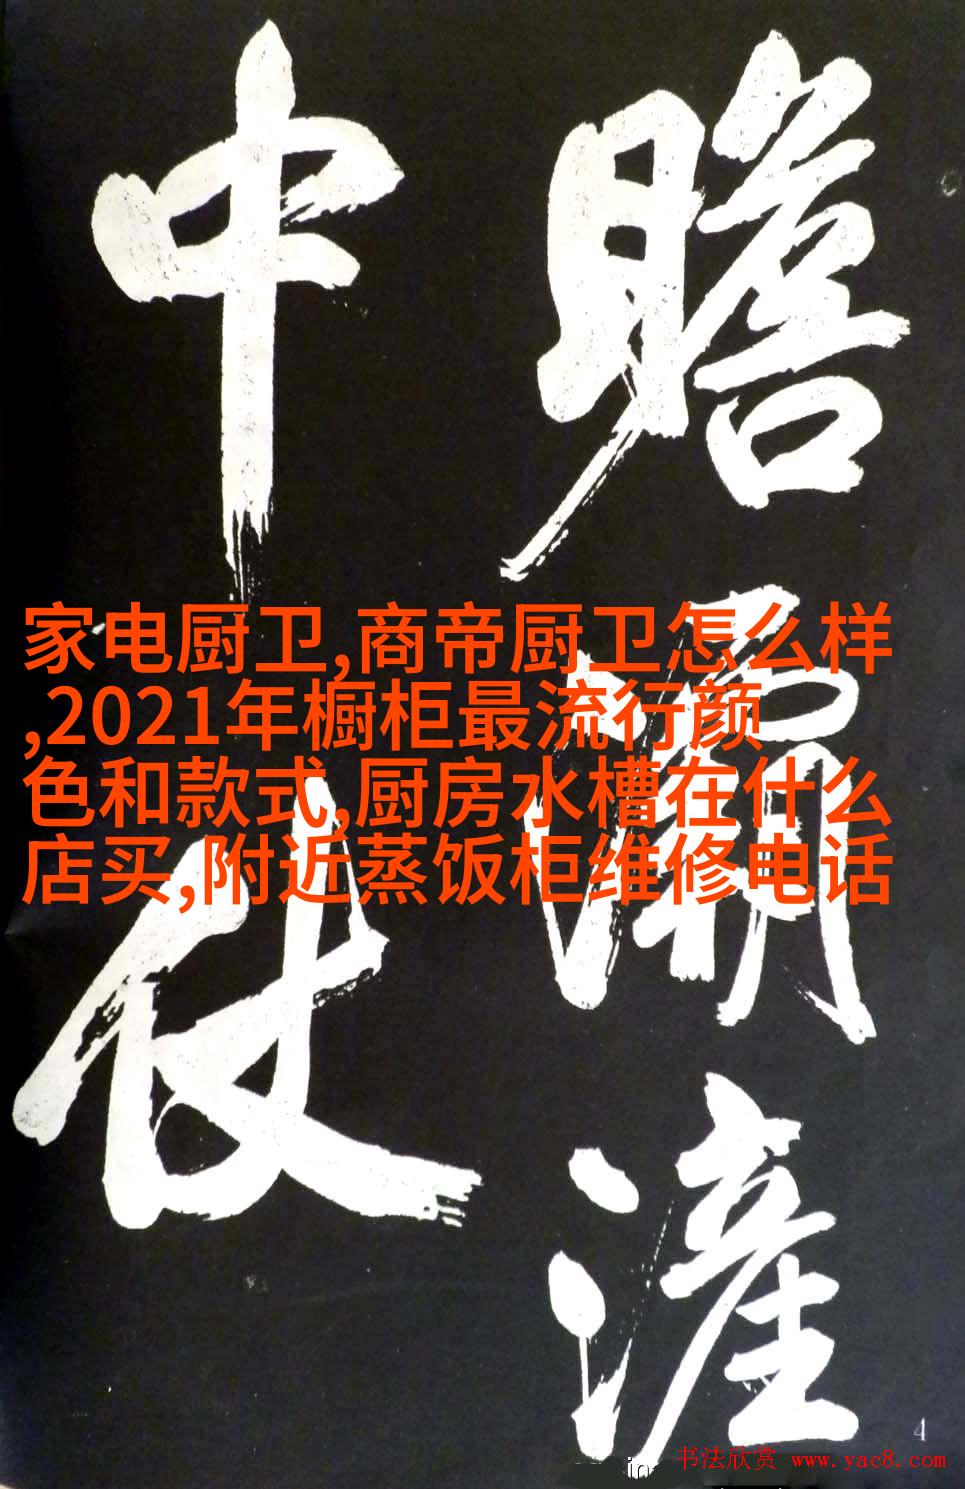 瞻
滻
中仗
家电厨卫,商帝厨卫怎么样
,2021年橱柜最流行颜
色和款式,厨房水槽在什么
店买,附近蒸饭柜维修电话
4
书法欣赏 www.yac8.com